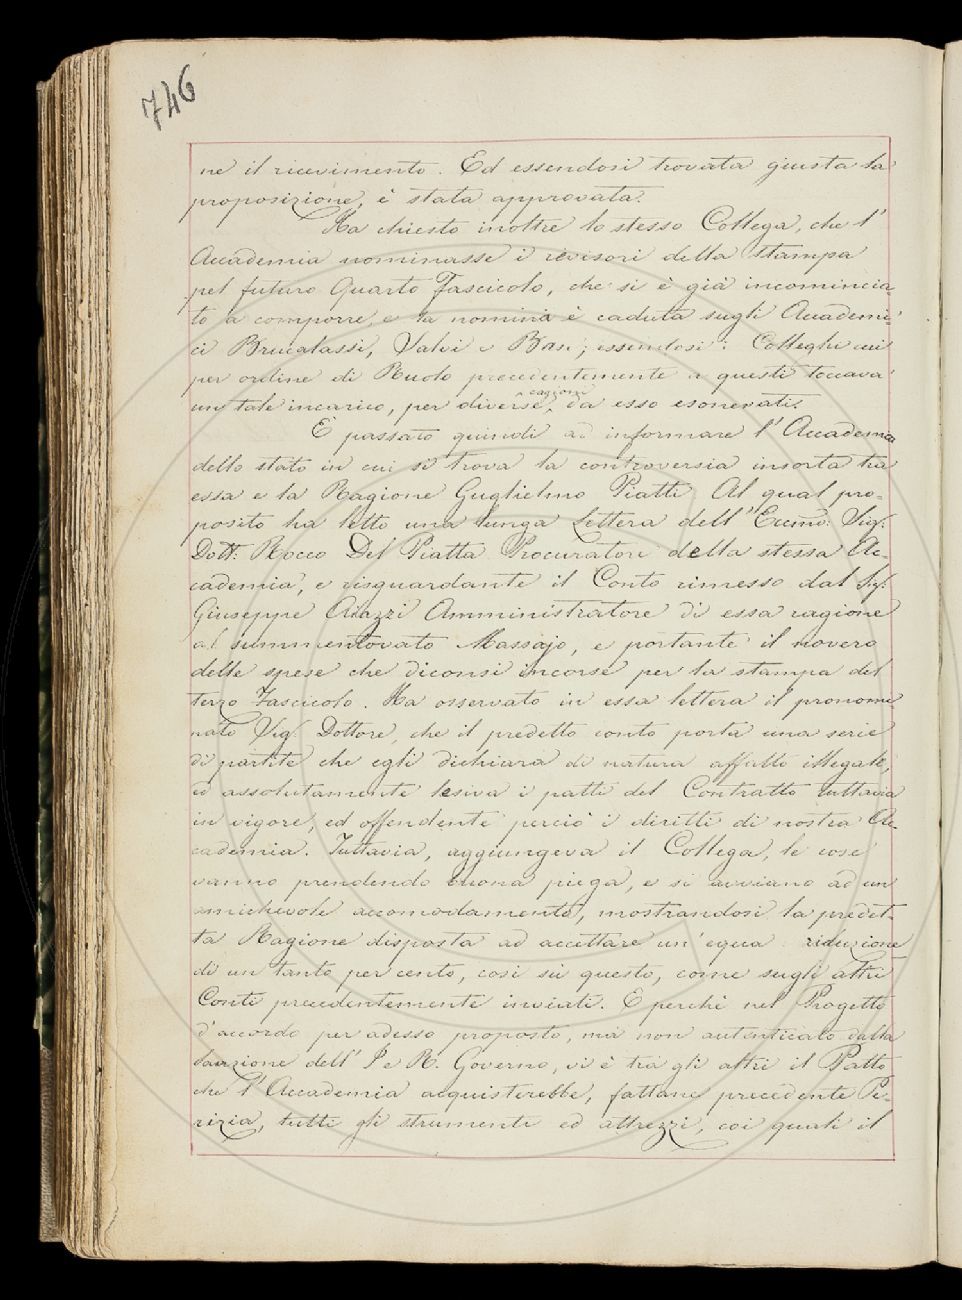 746
ne il ricevimento. Ed essendosi trovata giusta la
proposizione, è stata approvata.
Ha chiesto inoltre lo stesso Collega, che l'
Accademia nominasse i revisori della stampa
pel futuro Quarto Fascicolo, che si è già incomincia-
to a comporre, e la nomina è caduta sugli Accademi-
ci Brucalassi, Valeri e Basi; essendosi i Colleghi cui
per ordine di Ruolo precedentemente a questi toccava
un tale incarico, per diverse cagioni, da esso esonerati.
È passato quindi ad informare l'Accademia
dello stato in cui si trova la controversia insorta tra
essa e la Ragione Guglielmo Piatti. Al qual pro-
posito ha letto una lunga Lettera dell'Eccmo: Sig:
Dott: Rocco Del Piatta Procuratore della stessa Ac-
cademia, e risguardante il Conto rimesso dal Sig:
Giuseppe Aiazzi Amministratore di essa ragione
al summentovato Massajo, e portante il novero
delle spese che diconsi incorse per la stampa del
terzo Fascicolo. Ha osservato in essa lettera il prenomi-
nato Sig: Dottore, che il predetto conto porta una serie
di partite che egli dichiara di natura affatto illegale,
ed assolutamente lesiva i patti del Contratto tuttavia
in vigore, ed offendente perciò i diritti di nostra Ac-
cademia. Tuttavia, aggiungeva il Collega, le cose
vanno prendendo buona piega, e si avviano ad un
amichevole accomodamento, mostrandosi la predet-
ta Ragione disposta ad accettare un'equa riduzione
di un tanto per cento, così su questo, come sugli altri
Conti precedentemente inviati. E perchè nel Progetto
d'accordo per adesso proposto, ma non autenticato dalla
Sanzione dell'I e R. Governo, vi è tra gli altri il Patto
che l'Accademia acquisterebbe, fattane precedente Pe-
rizia, tutti gli strumenti ed attrezzi, coi quali il